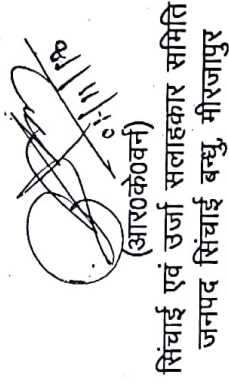 (आर०के०वर्न)
सिंचाई एवं उर्जा सलाहकार समिति
जनपद सिंचाई बन्धु, मीरजापुर